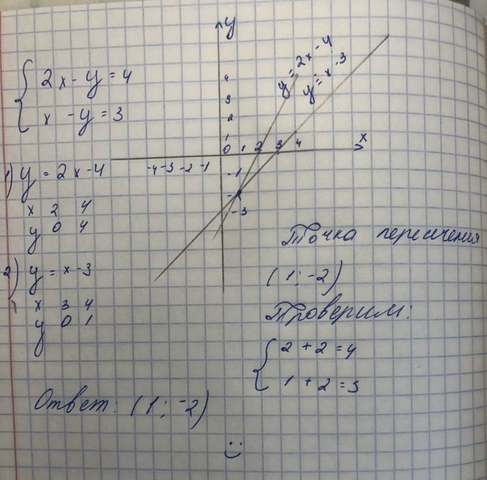 2x - y = 4
x - y = 3
1) y = 2x - 4
x 2 4
y 0 4
2) y = x - 3
x 3 4
y 0 1
y
y = 2x - 4
y = x - 3
4
3
2
1
x
-4 -3 -2 -1 0 1 2 3 4
-1
-2
-3
Точка пересечения
(1; -2)
Проверим:
2 + 2 = 4
1 + 2 = 3
Ответ: (1; -2)